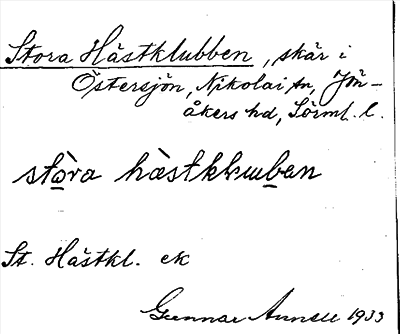 Stora Hästklubben, skär i
Östersjön, Nikolai sn, Jön-
åkers hd, Sörml. l.
stòra hàstkkuban
St. Hästkl. ek
Gunnar 1933